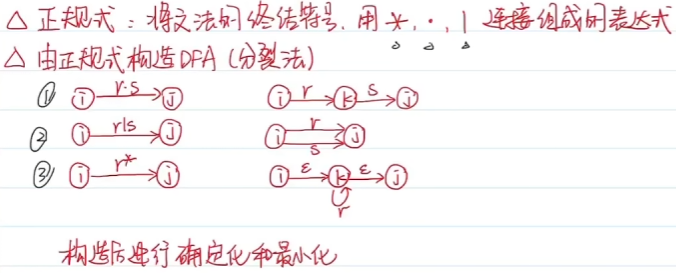 △ 正规式：将文法的终结符号，用 *，·，| 连接组成的表达式
△ 由正规式构造DFA（分裂法）
① i r·s j i r k s j
② i r|s j i r s j
③ i r* j i ε k ε j r
构造后进行确定化和最小化